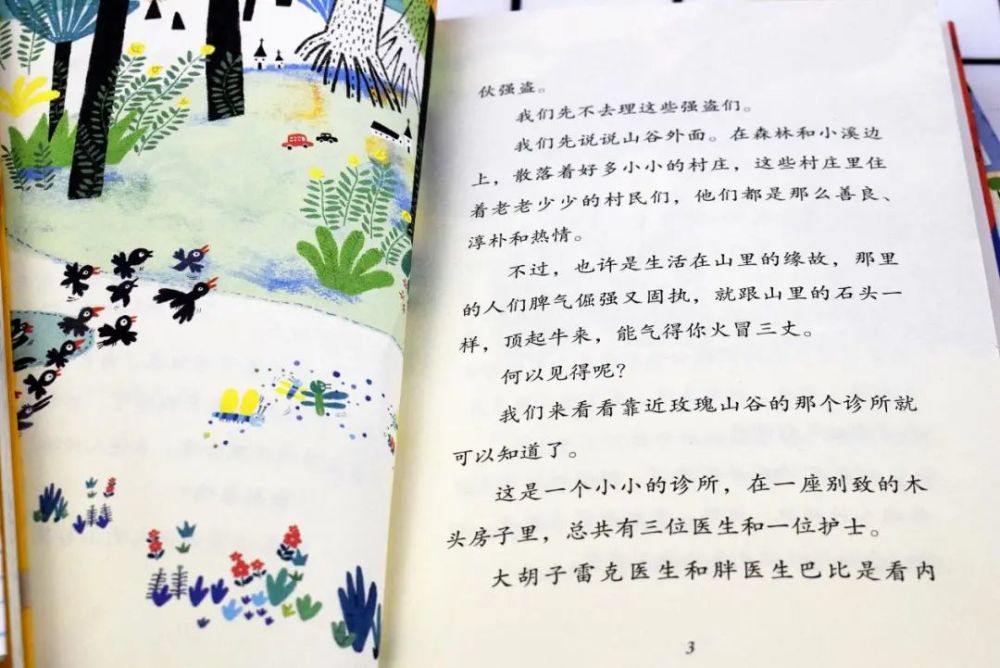 伙强盗。
我们先不去理这些强盗们。
我们先说说山谷外面。在森林和小溪边
上，散落着好多小小的村庄，这些村庄里住
着老老少少的村民们，他们都是那么善良、
淳朴和热情。
不过，也许是生活在山里的缘故，那里
的人们脾气倔强又固执，就跟山里的石头一
样，顶起牛来，能气得你火冒三丈。
何以见得呢？
我们来看看靠近玫瑰山谷的那个诊所就
可以知道了。
这是一个小小的诊所，在一座别致的木
头房子里，总共有三位医生和一位护士。
大胡子雷克医生和胖医生巴比是看内
3